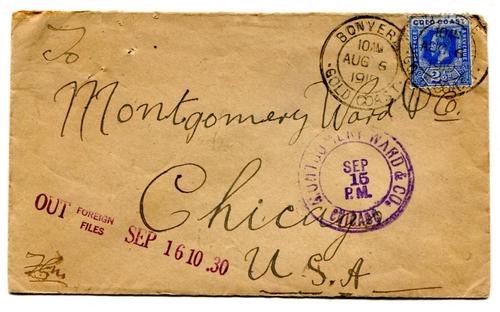 To
BONYERE
10AM
AUG 6
191
GOLD COAST
GOLD COAST
POSTAGE & REVENUE
2½
Montgomery Ward & Co.
MONTGOMERY WARD & CO.
SEP
15
P.M.
CHICAGO
Chicago
OUT FOREIGN FILES SEP 16 10.30
U.S.A